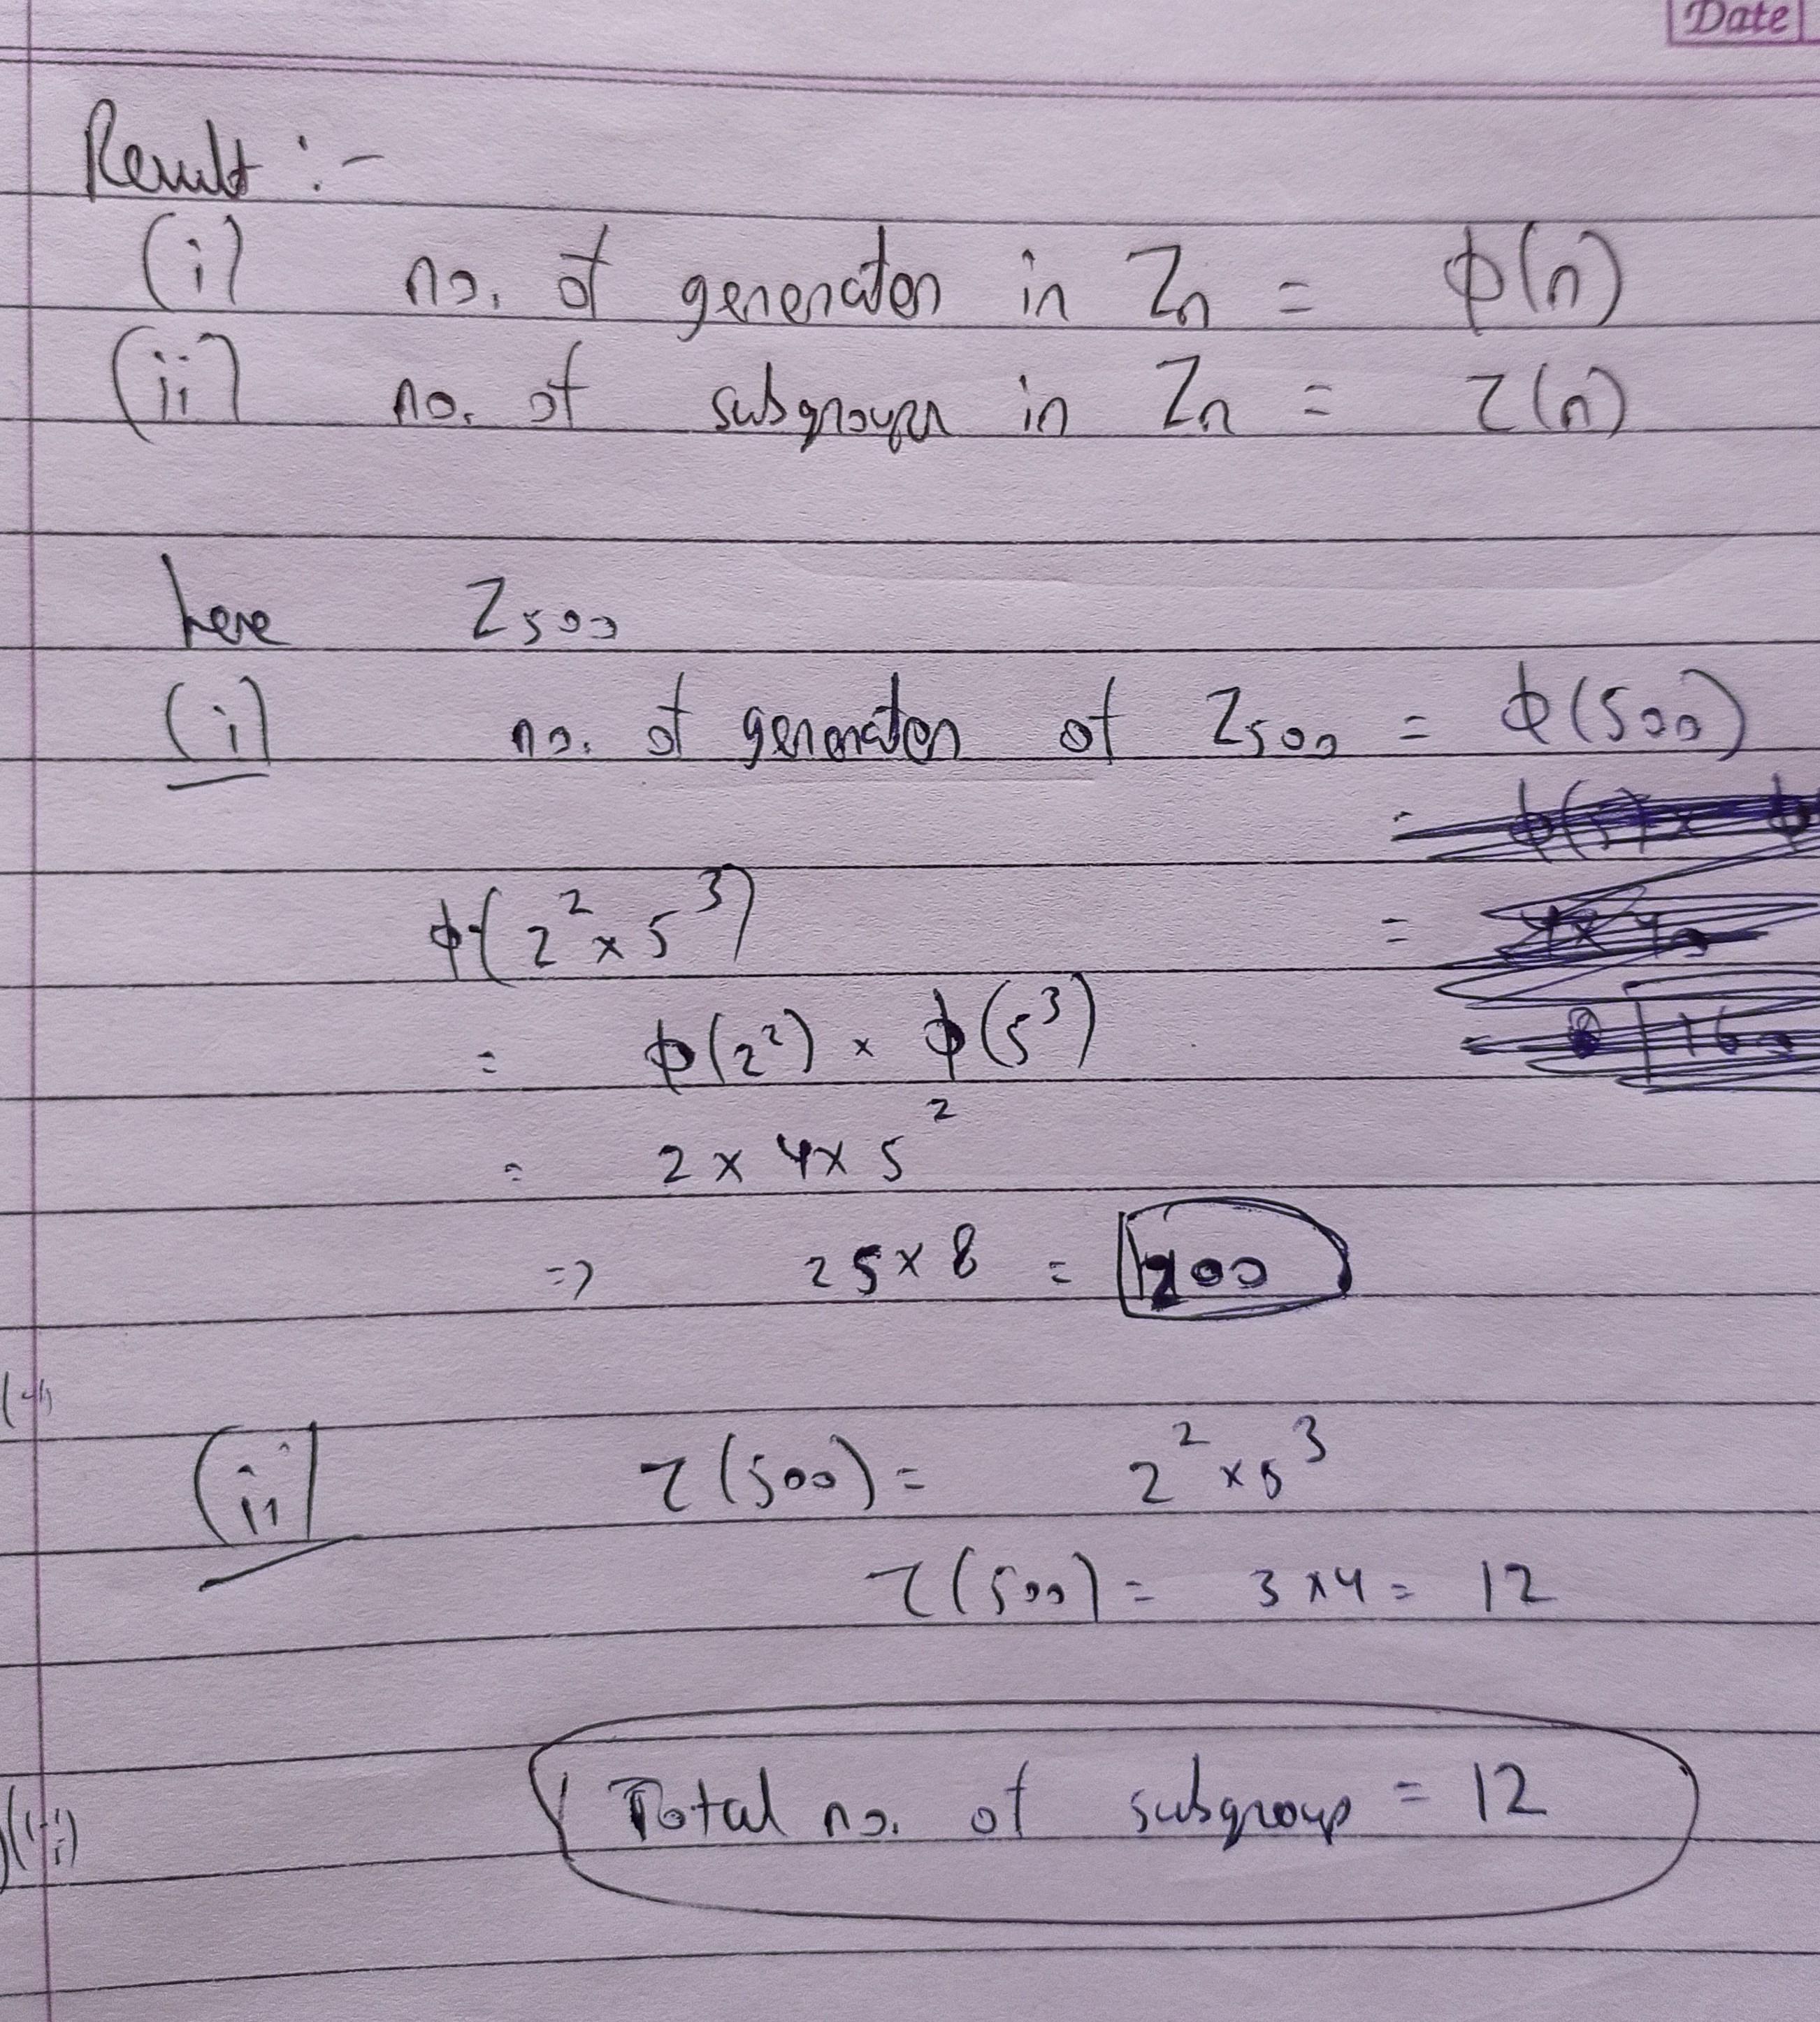 Date
Result :-
(i) no. of generators in Zn = ϕ(n)
(ii) no. of subgroups in Zn = τ(n)
here Z500
(i) no. of generators of Z500 = ϕ(500)
ϕ(2² × 5³)
= ϕ(2²) × ϕ(5³)
= 2 × 4 × 5²
=> 25 × 8 = 200
(ii) τ(500) = 2² × 5³
τ(500) = 3 × 4 = 12
Total no. of subgroup = 12